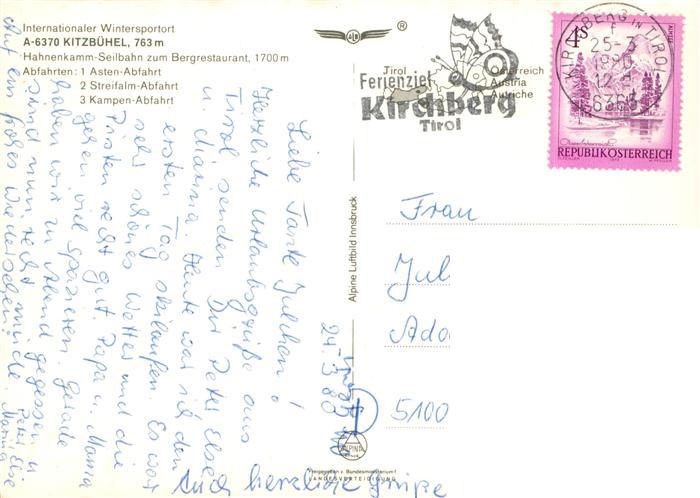 Internationaler Wintersportort
A-6370 KITZBÜHEL, 763 m
Hahnenkamm-Seilbahn zum Bergrestaurant, 1700 m
Abfahrten: 1 Asten-Abfahrt
2 Streifalm-Abfahrt
3 Kampen-Abfahrt
®
Tirol
Ferienziel
Kirchberg
Tirol
Österreich
Austria
Autriche
KIRCHBERG IN TIROL
25.-3
1980
6365
4 S
REPUBLIK ÖSTERREICH
Alpine Luftbild Innsbruck
24.3.80
Liebe Tante Julchen!
Herzliche Urlaubsgrüße aus
Tirol senden Dir Peter Else
u. Marina. Heute war ich den
ersten Tag skilaufen. Es war
sehr schönes Wetter und die
Pisten recht gut. Papa u. Mama
gehen viel spazieren. Gerade
haben wir zu Abend gegessen u
sind nun recht müde.
Auf ein frohes Wiedersehen!
Peter Else
Marina
Auch herzliche Grüße
Frau
Jul
Ado
5100
ALPINE
Freigegeben v. Bundesministerium f.
LANDESVERTEIDIGUNG